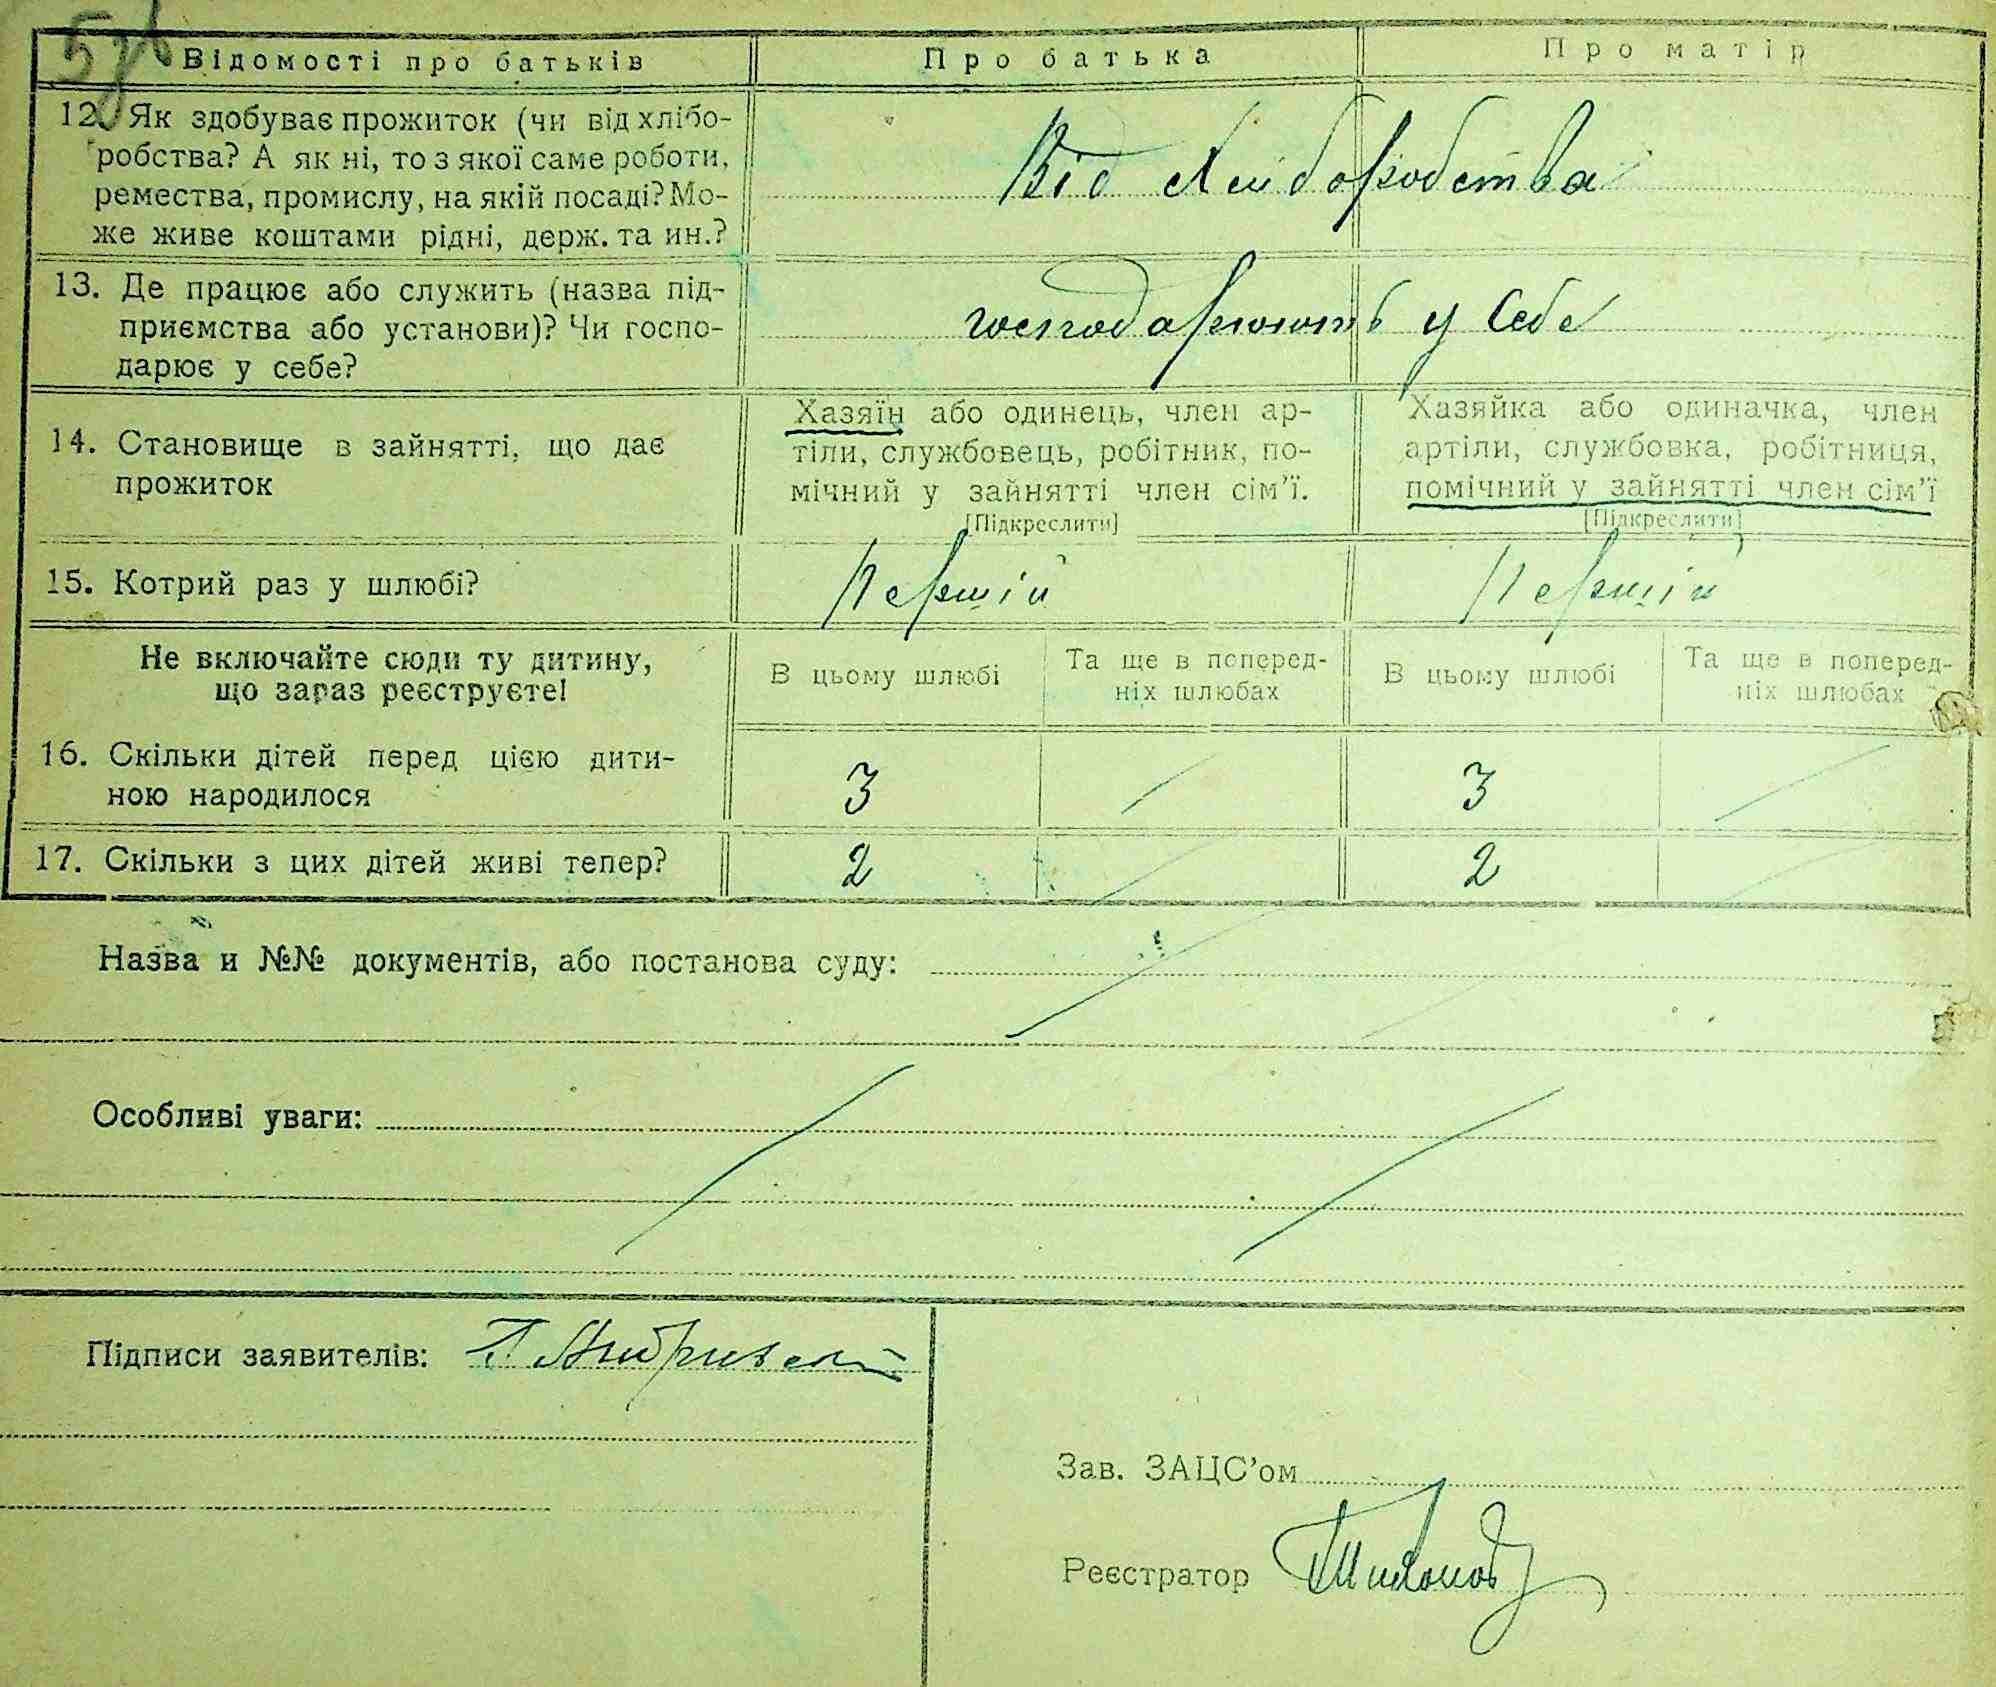 Відомості про батьків
Про батька
Про матір
12. Як здобуває прожиток (чи від хлібо-
робства? А як ні, то з якої саме роботи,
ремества, промислу, на якій посаді? Мо-
же живе коштами рідні, держ. та ин.?
Від хлиборобства
13. Де працює або служить (назва під-
приємства або установи)? Чи госпо-
дарює у себе?
господарюють у себе
14. Становище в зайнятті, що дає
прожиток
Хазяїн або одинець, член ар-
тіли, службовець, робітник, по-
мічний у зайнятті член сім’ї.
[Підкреслити]
Хазяйка або одиначка, член
артіли, службовка, робітниця,
помічний у зайнятті член сім’ї
[Підкреслити]
15. Котрий раз у шлюбі?
Першій
Першій
Не включайте сюди ту дитину,
що зараз реєструєте!
В цьому шлюбі
Та ще в поперед-
ніх шлюбах
В цьому шлюбі
Та ще в поперед-
ніх шлюбах
16. Скільки дітей перед цією дити-
ною народилося
3
3
17. Скільки з цих дітей живі тепер?
2
2
Назва и №№ документів, або постанова суду:
Особливі уваги:
Підписи заявителів:
Зав. ЗАЦС’ом
Реєстратор